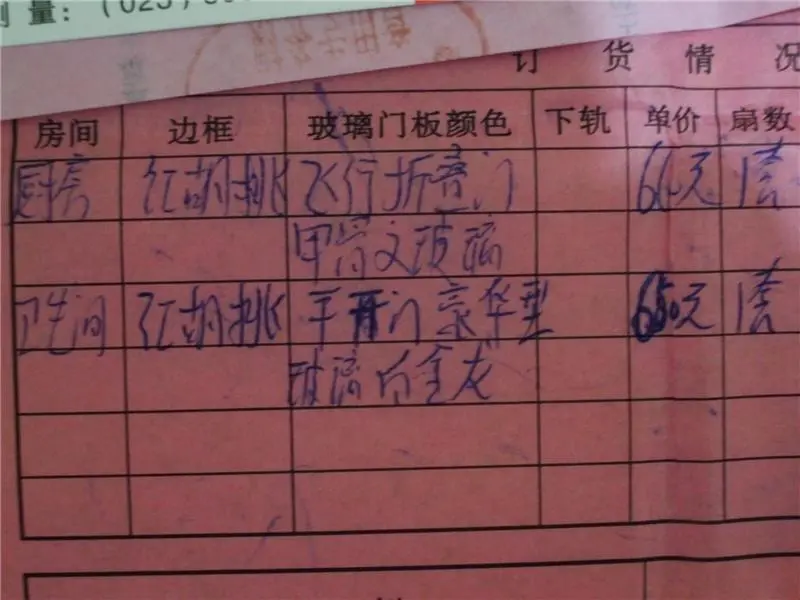 测量：（023）
订货情况
房间 边框 玻璃门板颜色 下轨 单价 扇数
厨房 红胡桃 飞行折叠门 1套
甲骨文玻璃
卫生间 红胡桃 平开门豪华型 650元 1套
玻璃 金灰